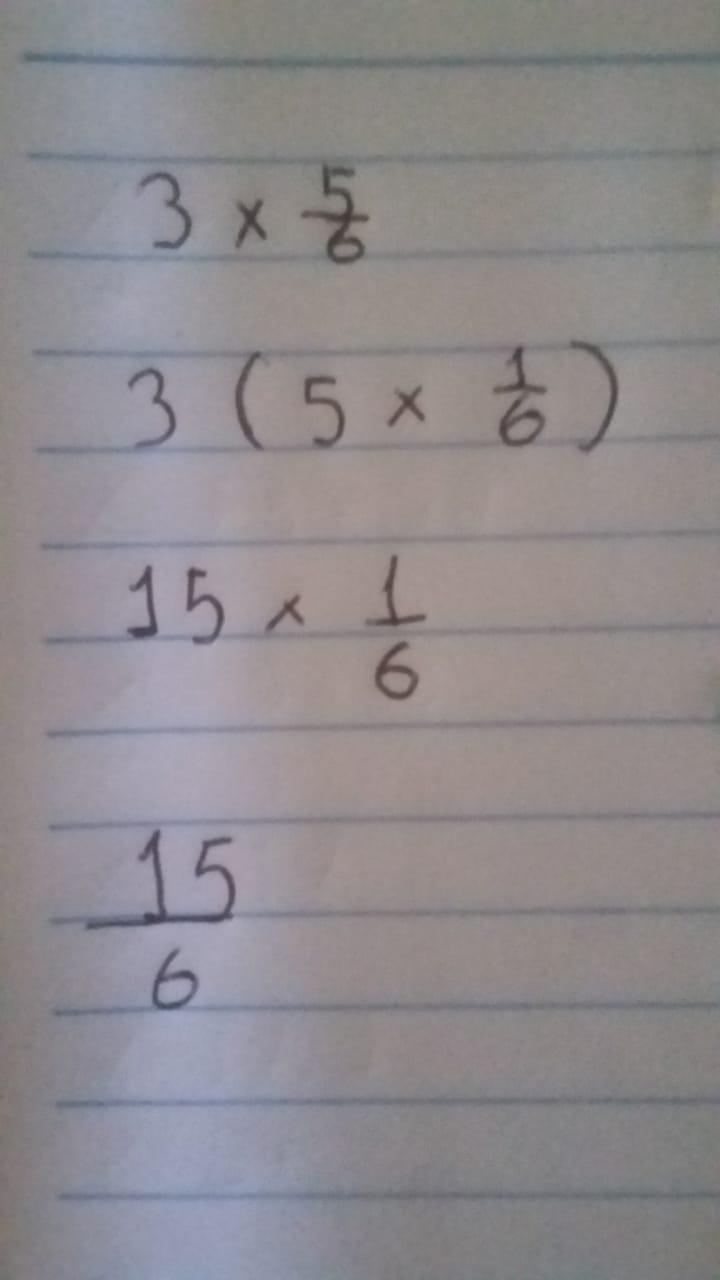 3 × 5/6
3 ( 5 × 1/6 )
15 × 1/6
15/6